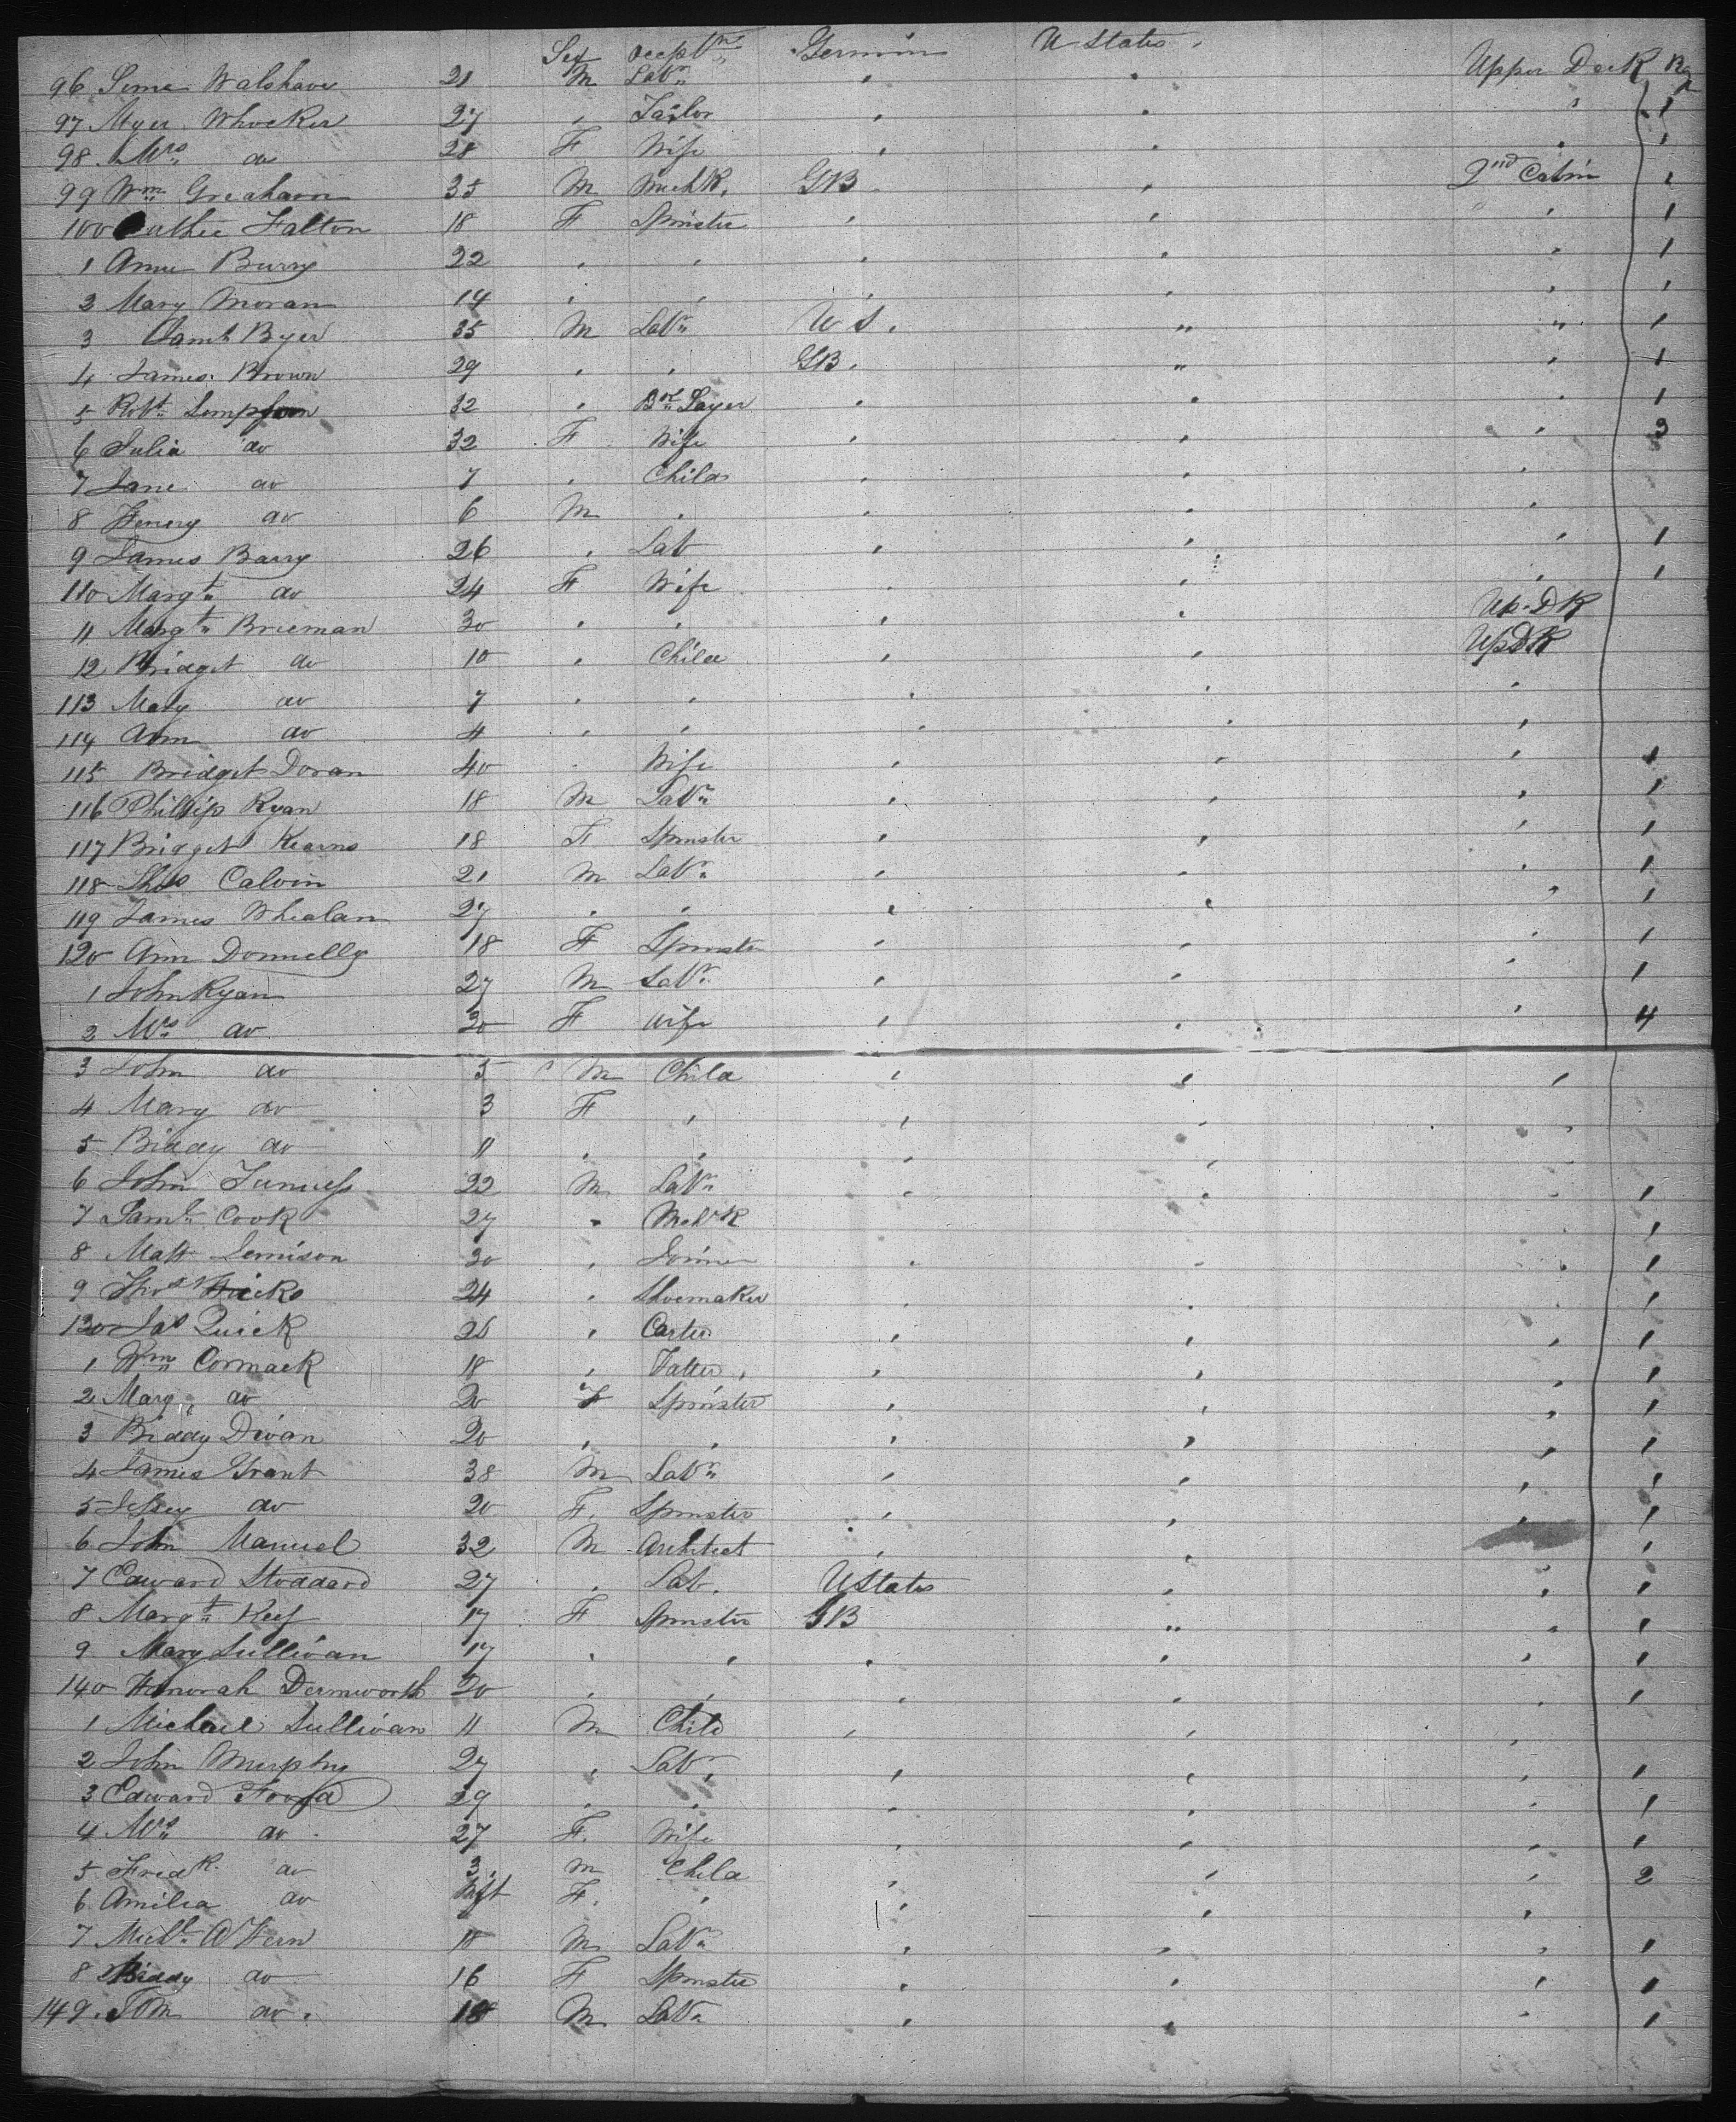 Sex Occptns German U States Upper Deck
96 Walshaver 21 M Labr "
97 Myer Whocker 27 " Tailor " " " 1
98 Mrs do 28 F Wife " " " 1
99 Wm Greaham 35 M Mechk. GB " 2nd Cabin 1
100 Cathie Falton 18 F Spinster " " " 1
1 Anne Burry 22 " " " " " 1
2 Mary Moran 14 " " " " " 1
3 Saml Byer 35 M Labr U S. " " 1
4 James Brown 29 " " GB. " " 1
5 Robt Sempson 32 " Br Layer " " " 1
6 Julia do 32 F Wife " " " 3
7 Jane do 7 " Child " " "
8 Henery do 6 M " " " "
9 James Barry 26 " Lab " " " 1
110 Margt do 24 F Wife " " " 1
11 Margt Brieman 30 " " " " Up. DK
12 Bridget do 10 " Child " " Up DK
113 Mary do 7 " " " " "
114 Ann do 4 " " " " "
115 Bridget Doran 40 " Wife " " " 1
116 Phillip Ryan 18 M Labr " " " 1
117 Bridget Kearns 18 F Spinster " " " 1
118 Thos Calvin 21 M Labr " " " 1
119 James Whealan 27 " " " " " 1
120 Ann Donnelly 18 F Spinster " " " 1
1 John Ryan 27 M Labr " " " 1
2 Mrs do 30 F Wife " " " 4
3 John do 5 M Child " " "
4 Mary do 3 F " " " "
5 Biddy do 11 " " " " "
6 John 22 M Labr " " " 1
7 Saml Cook 27 " Mchk " 1
8 Matt Jemison 30 " Joiner " " " 1
9 Thos Hicks 24 " Shoemaker " " 1
130 Jas Quick 26 " Carter " " " 1
1 Wm Cormack 18 " " " " 1
2 Marg do 20 F Spinster " " " 1
3 Biddy Divan 20 " " " " " 1
4 James Grant 38 M Labr " " " 1
5 Jessy do 20 F. Spinster " " " 1
6 John Manuel 32 M Architect " " 1
7 Edward Stoddard 27 " Lab. U States " " 1
8 Margt Keef 17 F Spinster GB " " 1
9 Mary Sullivan 17 " " " " " 1
140 Honorah Dermworth 20 " " " " " 1
1 Michael Sullivan 11 M Child " " "
2 John Murphy 27 " Labr " " " 1
3 Edward Foord 29 " " " " " 1
4 Mrs do 27 F. Wife " " " 1
5 Fredk do 3 M Child " " " 2
6 Amilia do Inft F. " " " "
7 Michl A Hern 18 M Labr " " " 1
8 Biddy do 16 F Spinster " " " 1
149 Tom do 18 M Labr " " " 1